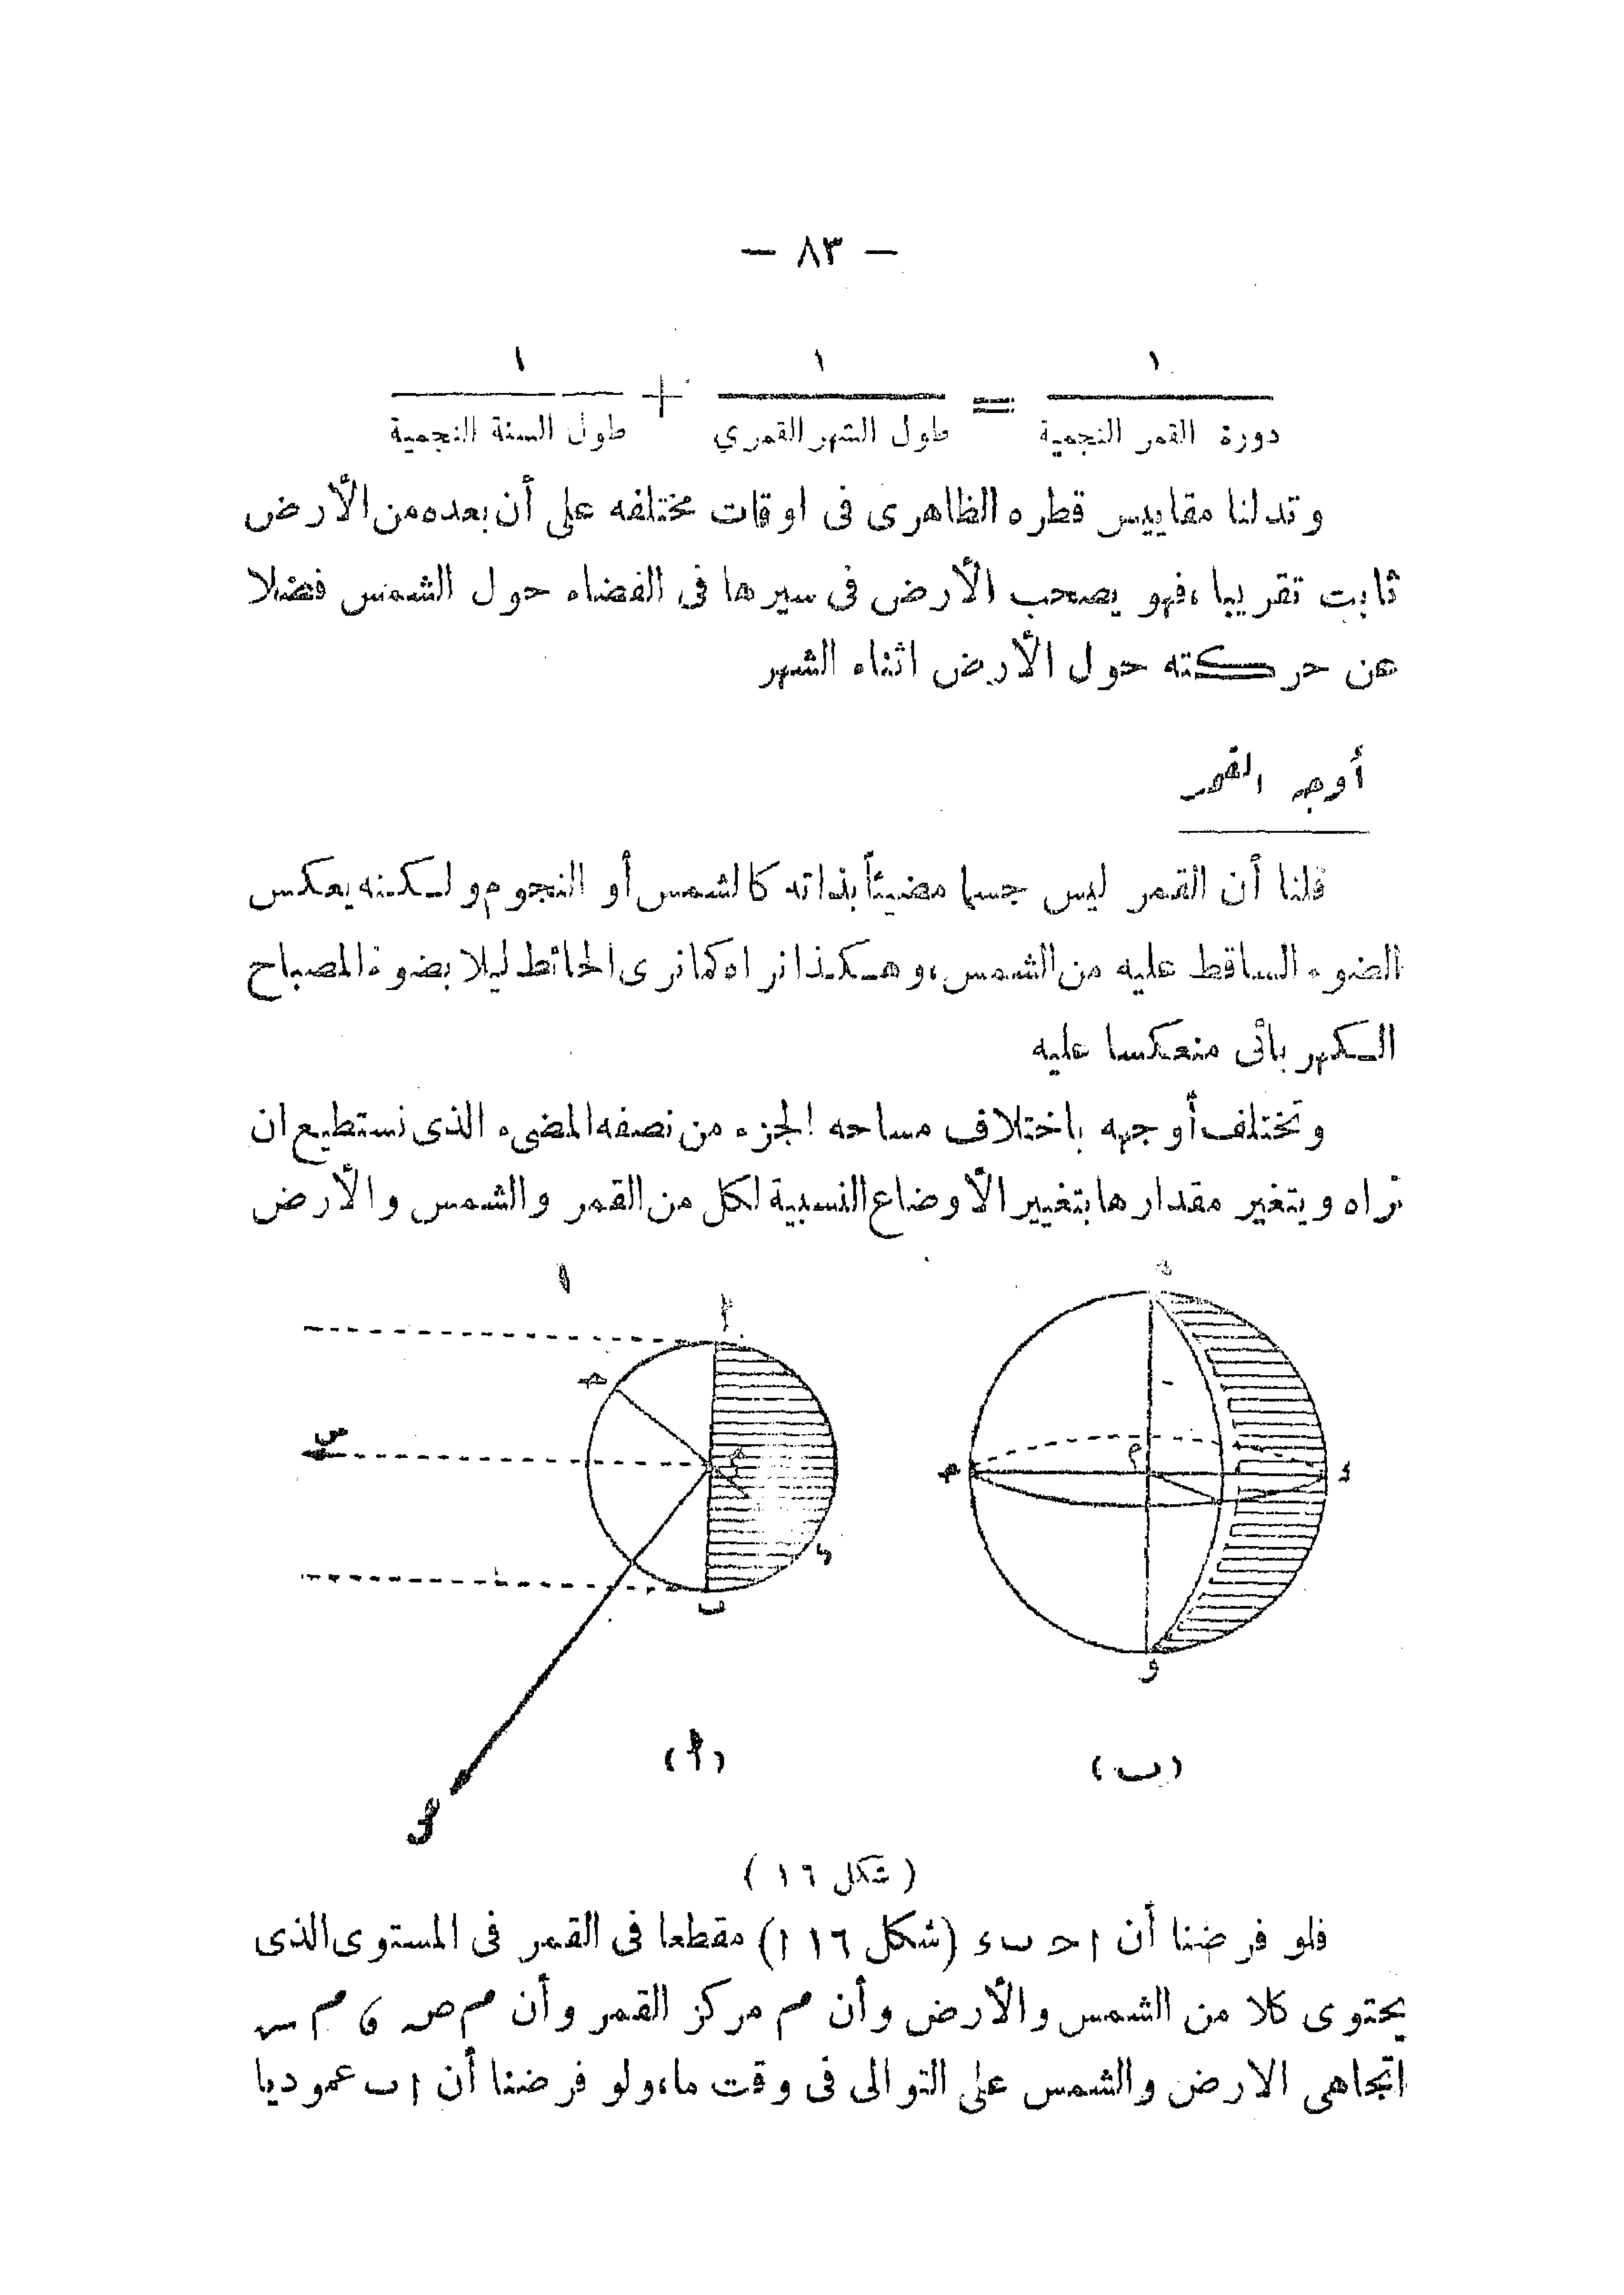 — ٨٣ —
١ ١ ١
ــــ = ــــ + ــــ
دورة القمر النجمية طول الشهر القمري طول السنة النجمية
وتدلنا مقاييس قطره الظاهرى فى اوقات مختلفه على أن بعده من الأرض
ثابت تقريبا ،فهو يصحب الأرض فى سيرها فى الفضاء حول الشمس فضلا
عن حركته حول الأرض اثناء الشهر
أوجه القمر
قلنا أن القمر ليس جسما مضيئاً بذاته كالشمس أو النجوم ولكنه يعكس
الضوء الساقط عليه من الشمس، وهكذا نراه كما نرى الحائط ليلا بضوء المصباح
الكهربائى منعكسا عليه
وتختلف أوجهه باختلاف مساحه الجزء من نصفه المضىء الذى نستطيع ان
نراه ويتغير مقدارها بتغيير الأوضاع النسبية لكل من القمر والشمس والأرض
ا
ح
س
م
ء
ب
ص
(ا)
ح
م
ء
و
(ب)
(شكل ١٦)
فلو فرضنا أن ا ح ب ء (شكل ١٦ ا) مقطعا فى القمر فى المستوى الذى
يحتوى كلا من الشمس والأرض وأن م مركز القمر وأن م ص ، م س
اتجاهى الارض والشمس على التوالى فى وقت ما، ولو فرضنا أن ا ب عموديا